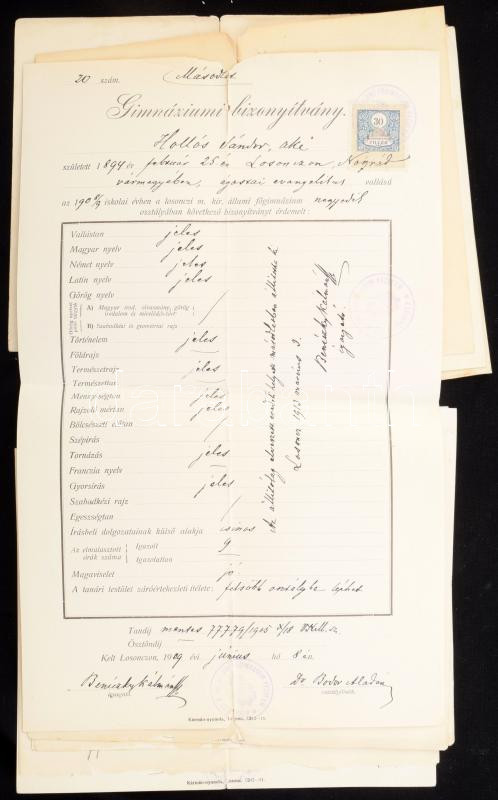 20 szám. Másodlat.
Gimnáziumi bizonyítvány.
30
FILLÉR
Hollós Sándor, aki
született 1894 év február 25én Losonczon, Nógrád
vármegyében, ágostai evangelikus vallású
az 1908/9 iskolai évben a losonczi m. kir. állami főgimnázium negyedik
osztályában következő bizonyítványt érdemelt:
Vallástan jeles
Magyar nyelv jeles
Német nyelv jeles
Latin nyelv jeles
Görög nyelv
A) Magyar irod. olvasmány, görög irodalom és
B) Szabadkézi és geometriai rajz
Történelem jeles
Földrajz
Természetrajz jeles
Természettan
Mennyiségtan jeles
Rajzoló mértan jeles
Bölcsészeti
Szépírás
Tornázás jeles
Franczia nyelv
Gyorsírás jeles
Szabadkézi rajz
Egészségtan
Írásbeli dolgozatainak külső alakja csinos
Az elmulasztott órák száma
Igazolt 9
Igazolatlan
Magaviselet jó
A tanári testület záróértekezleti ítélete: felsőbb osztályba léphet
Az állítólag elveszett eredeti helyett másodlatban állította ki
Losoncz 1913 márczius 3.
Beniczky Kálmán
igazgató
Tandíj mentes 77779/1905
Ösztöndíj
Kelt Losonczon, 1909 évi június hó 8 án.
Beniczky Kálmán
igazgató.
Dr Bodor Aladár
osztályfőnök.
Kármán-nyomda, Losoncz, 1912